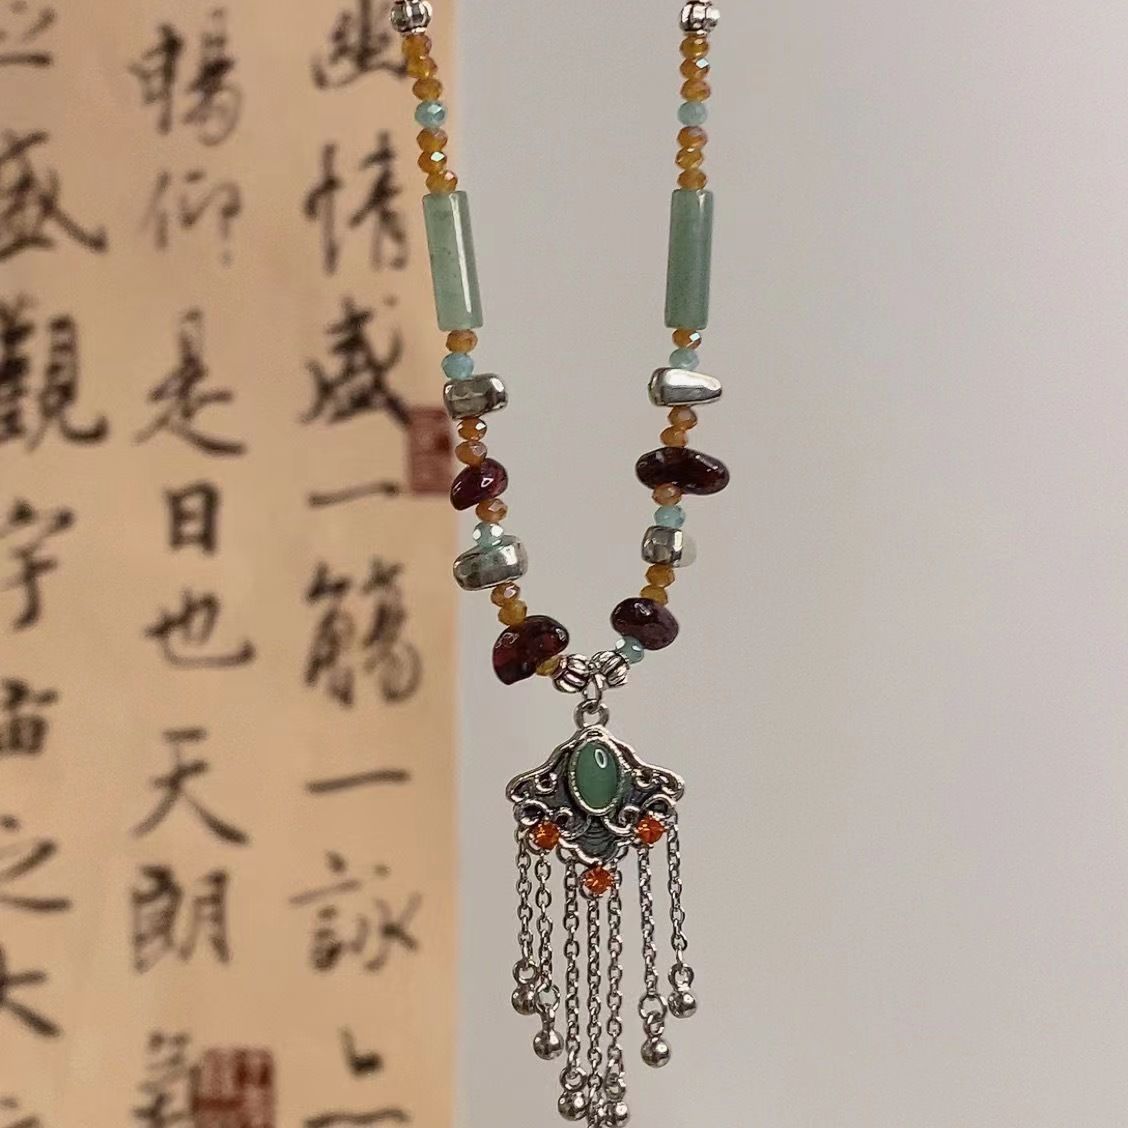 幽情盛一觴一詠
暢仰是日也天朗
盛觀宇宙之大